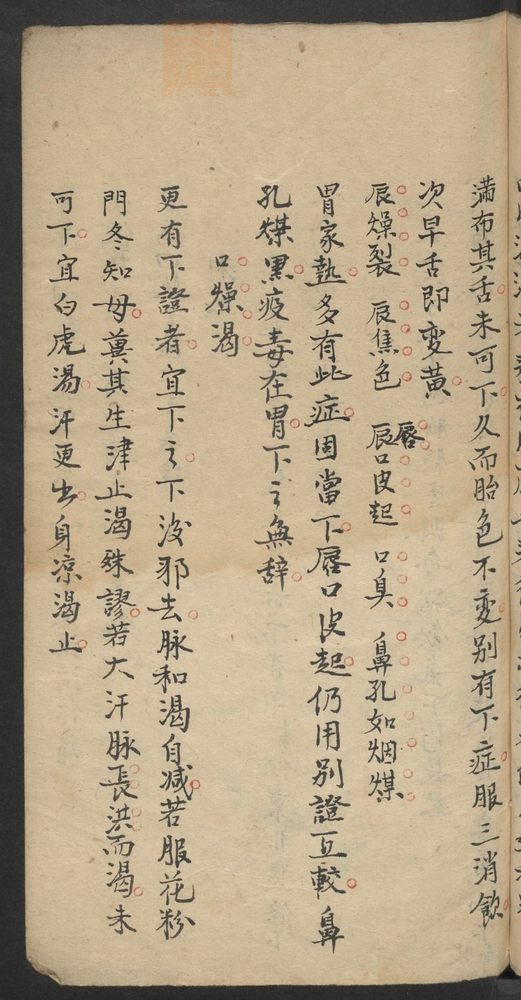 滿布其舌未可下久而胎色不变别有下症服三消飲
次早舌即变黄
辰燥裂 辰焦色 辰口皮起 口臭 鼻孔如烟煤
唇
胃家熱多有此症固當下唇口皮起仍用别證互較鼻
孔煤黑疫毒在胃下之無辞
口燥渴
更有下證者宜下之下後邪去脉和渴自减若服花粉
門冬知母冀其生津止渴殊謬若大汗脉長洪而渴未
可下宜白虎湯汗更出身凉渴止